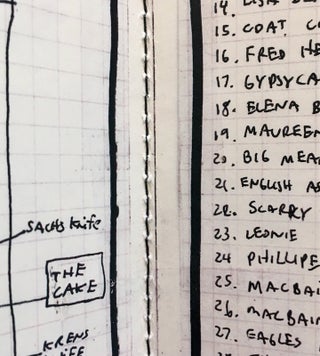 SACHS Knife
THE
CAKE
KRENS
14.
15. COAT
16. FRED HE
17. GYPSYCA
18. ELENA B
19. MAUREEN
20. BIG MEA
21. ENGLISH AS
22. SCARRY
23. LEONIE
24 PHILLIPE
25. MACBAI
26. MACBAIN
27. EAGLES